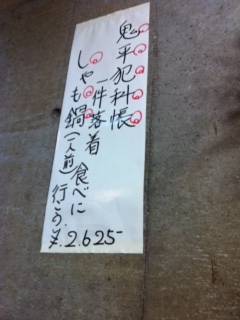 鬼平犯科帳
一件落着
しゃも鍋(一人前)食べに
行こう！¥2.625-